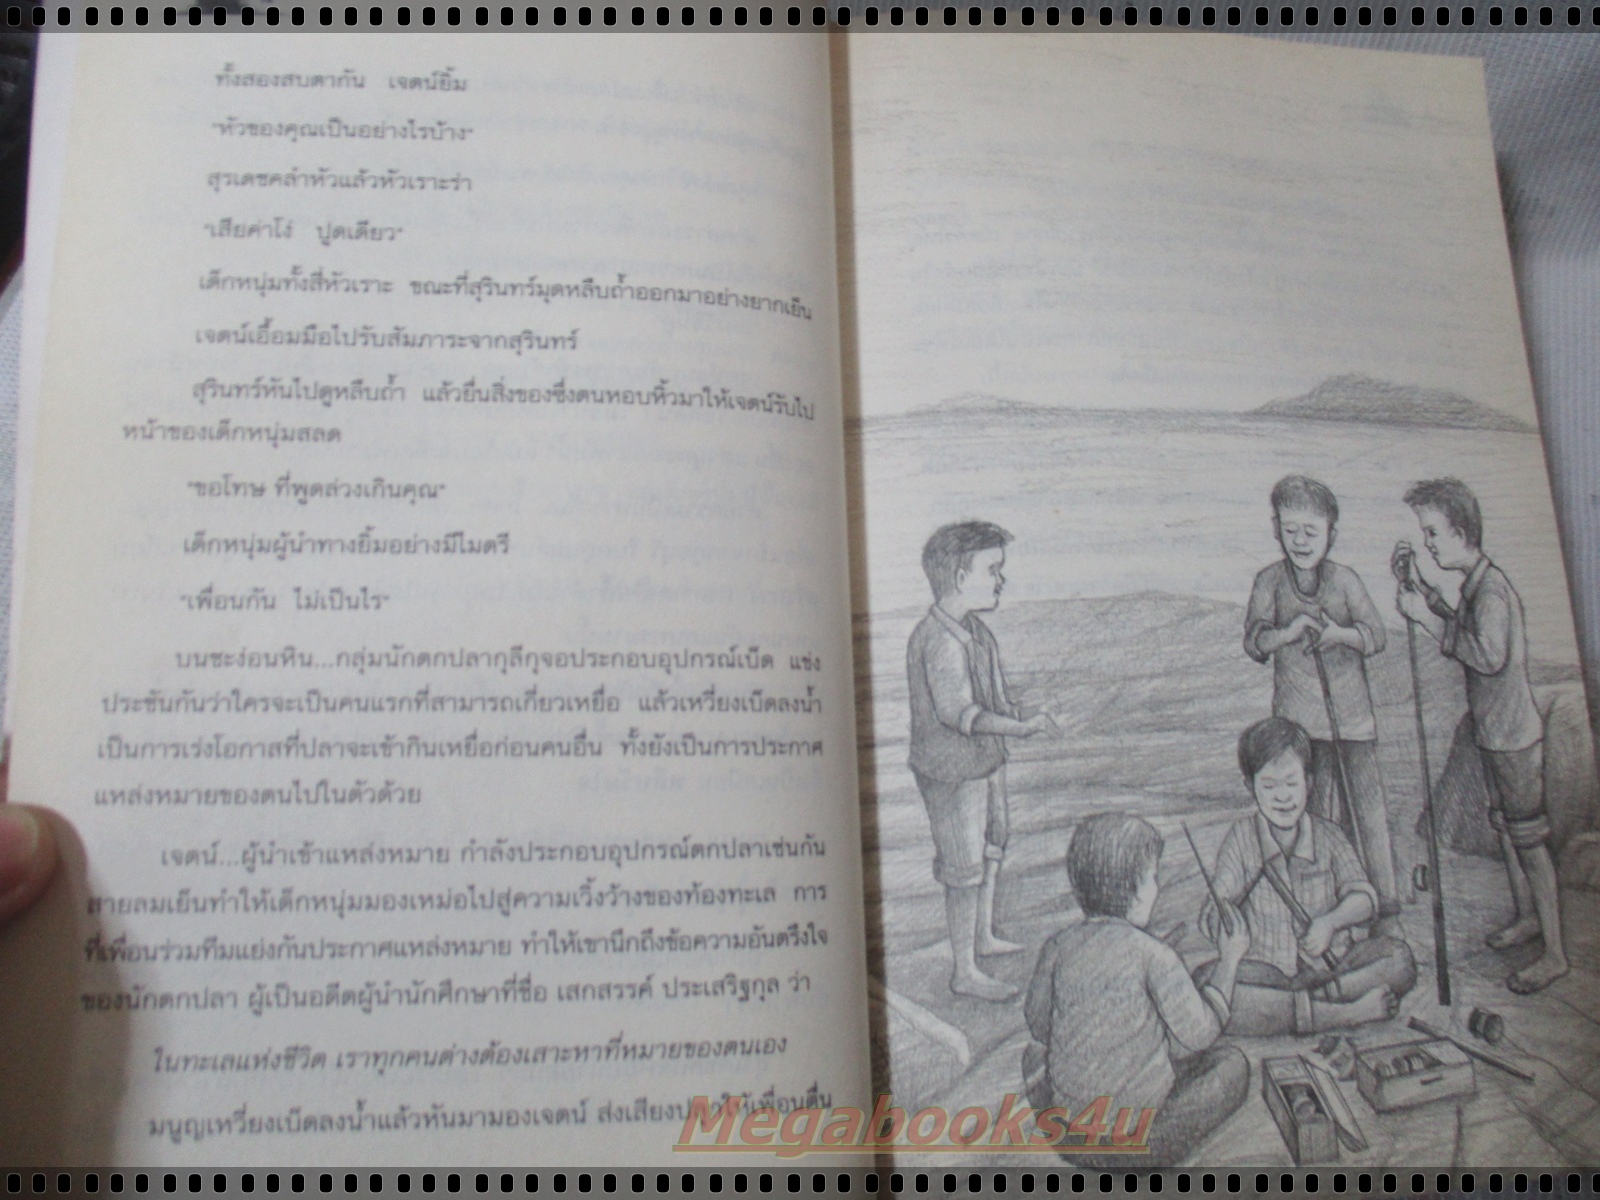 ทั้งสองสบตากัน เจตน์ยิ้ม
"หัวของคุณเป็นอย่างไรบ้าง"
สุรเดชคลำหัวแล้วหัวเราะร่า
"เสียค่าโง่ ปูดเดียว"
เด็กหนุ่มทั้งสี่หัวเราะ ขณะที่สุรินทร์มุดหลืบถ้ำออกมาอย่างยากเย็น
เจตน์เอื้อมมือไปรับสัมภาระจากสุรินทร์
สุรินทร์หันไปดูหลืบถ้ำ แล้วยื่นสิ่งของซึ่งตนหอบหิ้วมาให้เจตน์รับไป
หน้าของเด็กหนุ่มสลด
"ขอโทษ ที่พูดล่วงเกินคุณ"
เด็กหนุ่มผู้นำทางยิ้มอย่างมีไมตรี
"เพื่อนกัน ไม่เป็นไร"
บนชะง่อนหิน...กลุ่มนักตกปลากุลีกุจอประกอบอุปกรณ์เบ็ด แข่ง
ประชันกันว่าใครจะเป็นคนแรกที่สามารถเกี่ยวเหยื่อ แล้วเหวี่ยงเบ็ดลงน้ำ
เป็นการเร่งโอกาสที่ปลาจะเข้ากินเหยื่อก่อนคนอื่น ทั้งยังเป็นการประกาศ
แหล่งหมายของตนไปในตัวด้วย
เจตน์...ผู้นำเข้าแหล่งหมาย กำลังประกอบอุปกรณ์ตกปลาเช่นกัน
สายลมเย็นทำให้เด็กหนุ่มมองเหม่อไปสู่ความเวิ้งว้างของท้องทะเล การ
ที่เพื่อนร่วมทีมแย่งกันประกาศแหล่งหมาย ทำให้เขานึกถึงข้อความอันตรึงใจ
ของนักตกปลา ผู้เป็นอดีตผู้นำนักศึกษาที่ชื่อ เสกสรรค์ ประเสริฐกุล ว่า
ในทะเลแห่งชีวิต เราทุกคนต่างต้องเสาะหาที่หมายของตนเอง
มนูญเหวี่ยงเบ็ดลงน้ำแล้วหันมามองเจตน์ ส่งเสียงปลุกให้เพื่อนตื่น
Megabooks4u